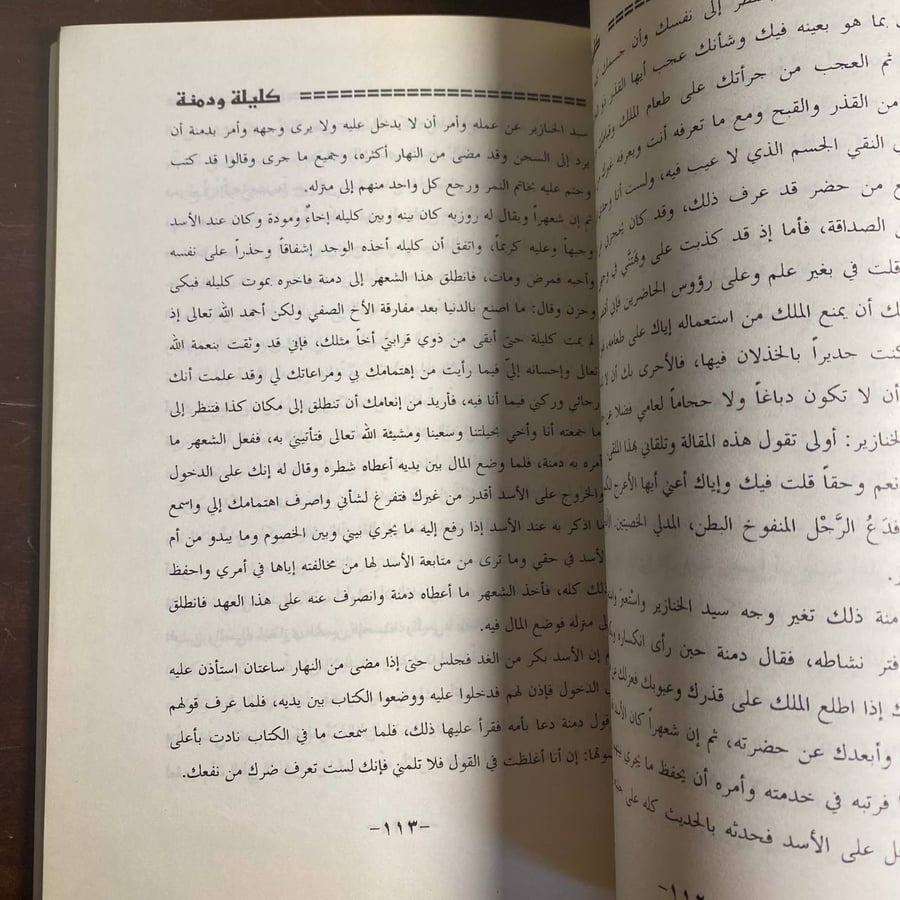 نظر إلى نفسك وأن جسمك
بما هو بعينه فيك وشأنك عجب أيها القذر
ثم العجب من جرأتك على طعام الملك
من القذر والقبح ومع ما تعرفه أنت ويعرفه غيرك
النقي الجسم الذي لا عيب فيه، ولست أنا
من حضر قد عرف ذلك، وقد كان
الصداقة، فأما إذ قد كذبت علي
قلت في بغير علم وعلى رؤوس الحاضرين فإني
أن يمنع الملك من استعماله إياك على طعامه
كنت جديراً بالخذلان فيها، فالأحرى بك أن لا
أن لا تكون دباغاً ولا حجاماً لعامي فضلا عن
الخنازير: أولي تقول هذه المقالة وتلقاني بهذا
نعم وحقاً قلت فيك وإياك أعني أيها الأعرج
فدَعُ الرَّجْل المنفوخ البطن، المدلي الخصيتين
دمنة ذلك تغير وجه سيد الخنازير واستعبر
فتر نشاطه، فقال دمنة حين رأى انكساره
إذا اطلع الملك على قذرك وعيوبك فعزلك عن
وأبعدك عن حضرته، ثم إن شعهراً كان
فرتبه في خدمته وأمره أن يحفظ ما يجري
على الأسد فحدثه بالحديث كله على
-١١٢
كليلة ودمنة
سيد الخنازير عن عمله وأمر أن لا يدخل عليه ولا يرى وجهه وأمر بدمنة أن
يرد إلى السجن وقد مضى من النهار أكثره، وجميع ما جرى وقالوا قد كتب
وختم عليه بخاتم النمر ورجع كل واحد منهم إلى منزله.
ثم إن شعهراً ويقال له روزبه كان بينه وبين كليله إخاءٌ ومودة وكان عند الأسد
وجيهاً وعليه كريماً، واتفق أن كليله أخذه الوجد إشفاقاً وحذراً على نفسه
وأخيه فمرض ومات، فانطلق هذا الشعهر إلى دمنة فاخبره بموت كليله فبكى
وحزن وقال: ما اصنع بالدنيا بعد مفارقة الأخ الصفي ولكن أحمد الله تعالى إذ
لم يمت كليلة حتى أبقى من ذوي قرابتي أخاً مثلك، فإني قد وثقت بنعمة الله
تعالى وإحسانه إليّ فيما رأيت من إهتمامك بي ومراعاتك لي وقد علمت أنك
رجائي وركني فيما أنا فيه، فأريد من إنعامك أن تنطلق إلى مكان كذا فتنظر إلى
ما جمعته أنا وأخي بحيلتنا وسعينا ومشيئة الله تعالى فتأتيني به، ففعل الشعهر ما
أمره به دمنة، فلما وضع المال بين يديه أعطاه شطره وقال له إنك على الدخول
والخروج على الأسد أقدر من غيرك فتفرغ لشأني واصرف اهتمامك إلي واسمع
ما اذكر به عند الأسد إذا رفع إليه ما يجري بيني وبين الخصوم وما يبدو من أم
الأسد في حقي وما ترى من متابعة الأسد لها من مخالفته إياها في أمري واحفظ
ذلك كله، فأخذ الشعهر ما أعطاه دمنة وانصرف عنه على هذا العهد فانطلق
إلى منزله فوضع المال فيه.
ثم إن الأسد بكر من الغد فجلس حتى إذا مضى من النهار ساعتان استأذن عليه
في الدخول فإذن لهم فدخلوا عليه ووضعوا الكتاب بين يديه، فلما عرف قولهم
وقول دمنة دعا بأمه فقرأ عليها ذلك، فلما سمعت ما في الكتاب نادت بأعلى
صوتها: إن أنا أغلظت في القول فلا تلمني فإنك لست تعرف ضرك من نفعك.
-١١٣-